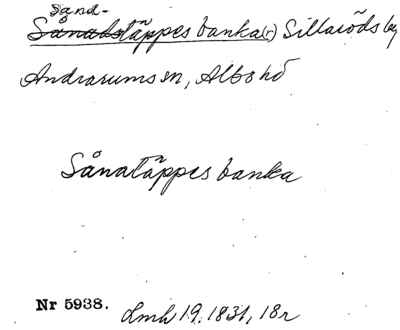 Sånd-
Sånatstäppes banka(r) Sillaröds by
Andrarums sn, Albo hd
Sånatäppes banka
Nr 5938. Lmh 19. 1831, 18r